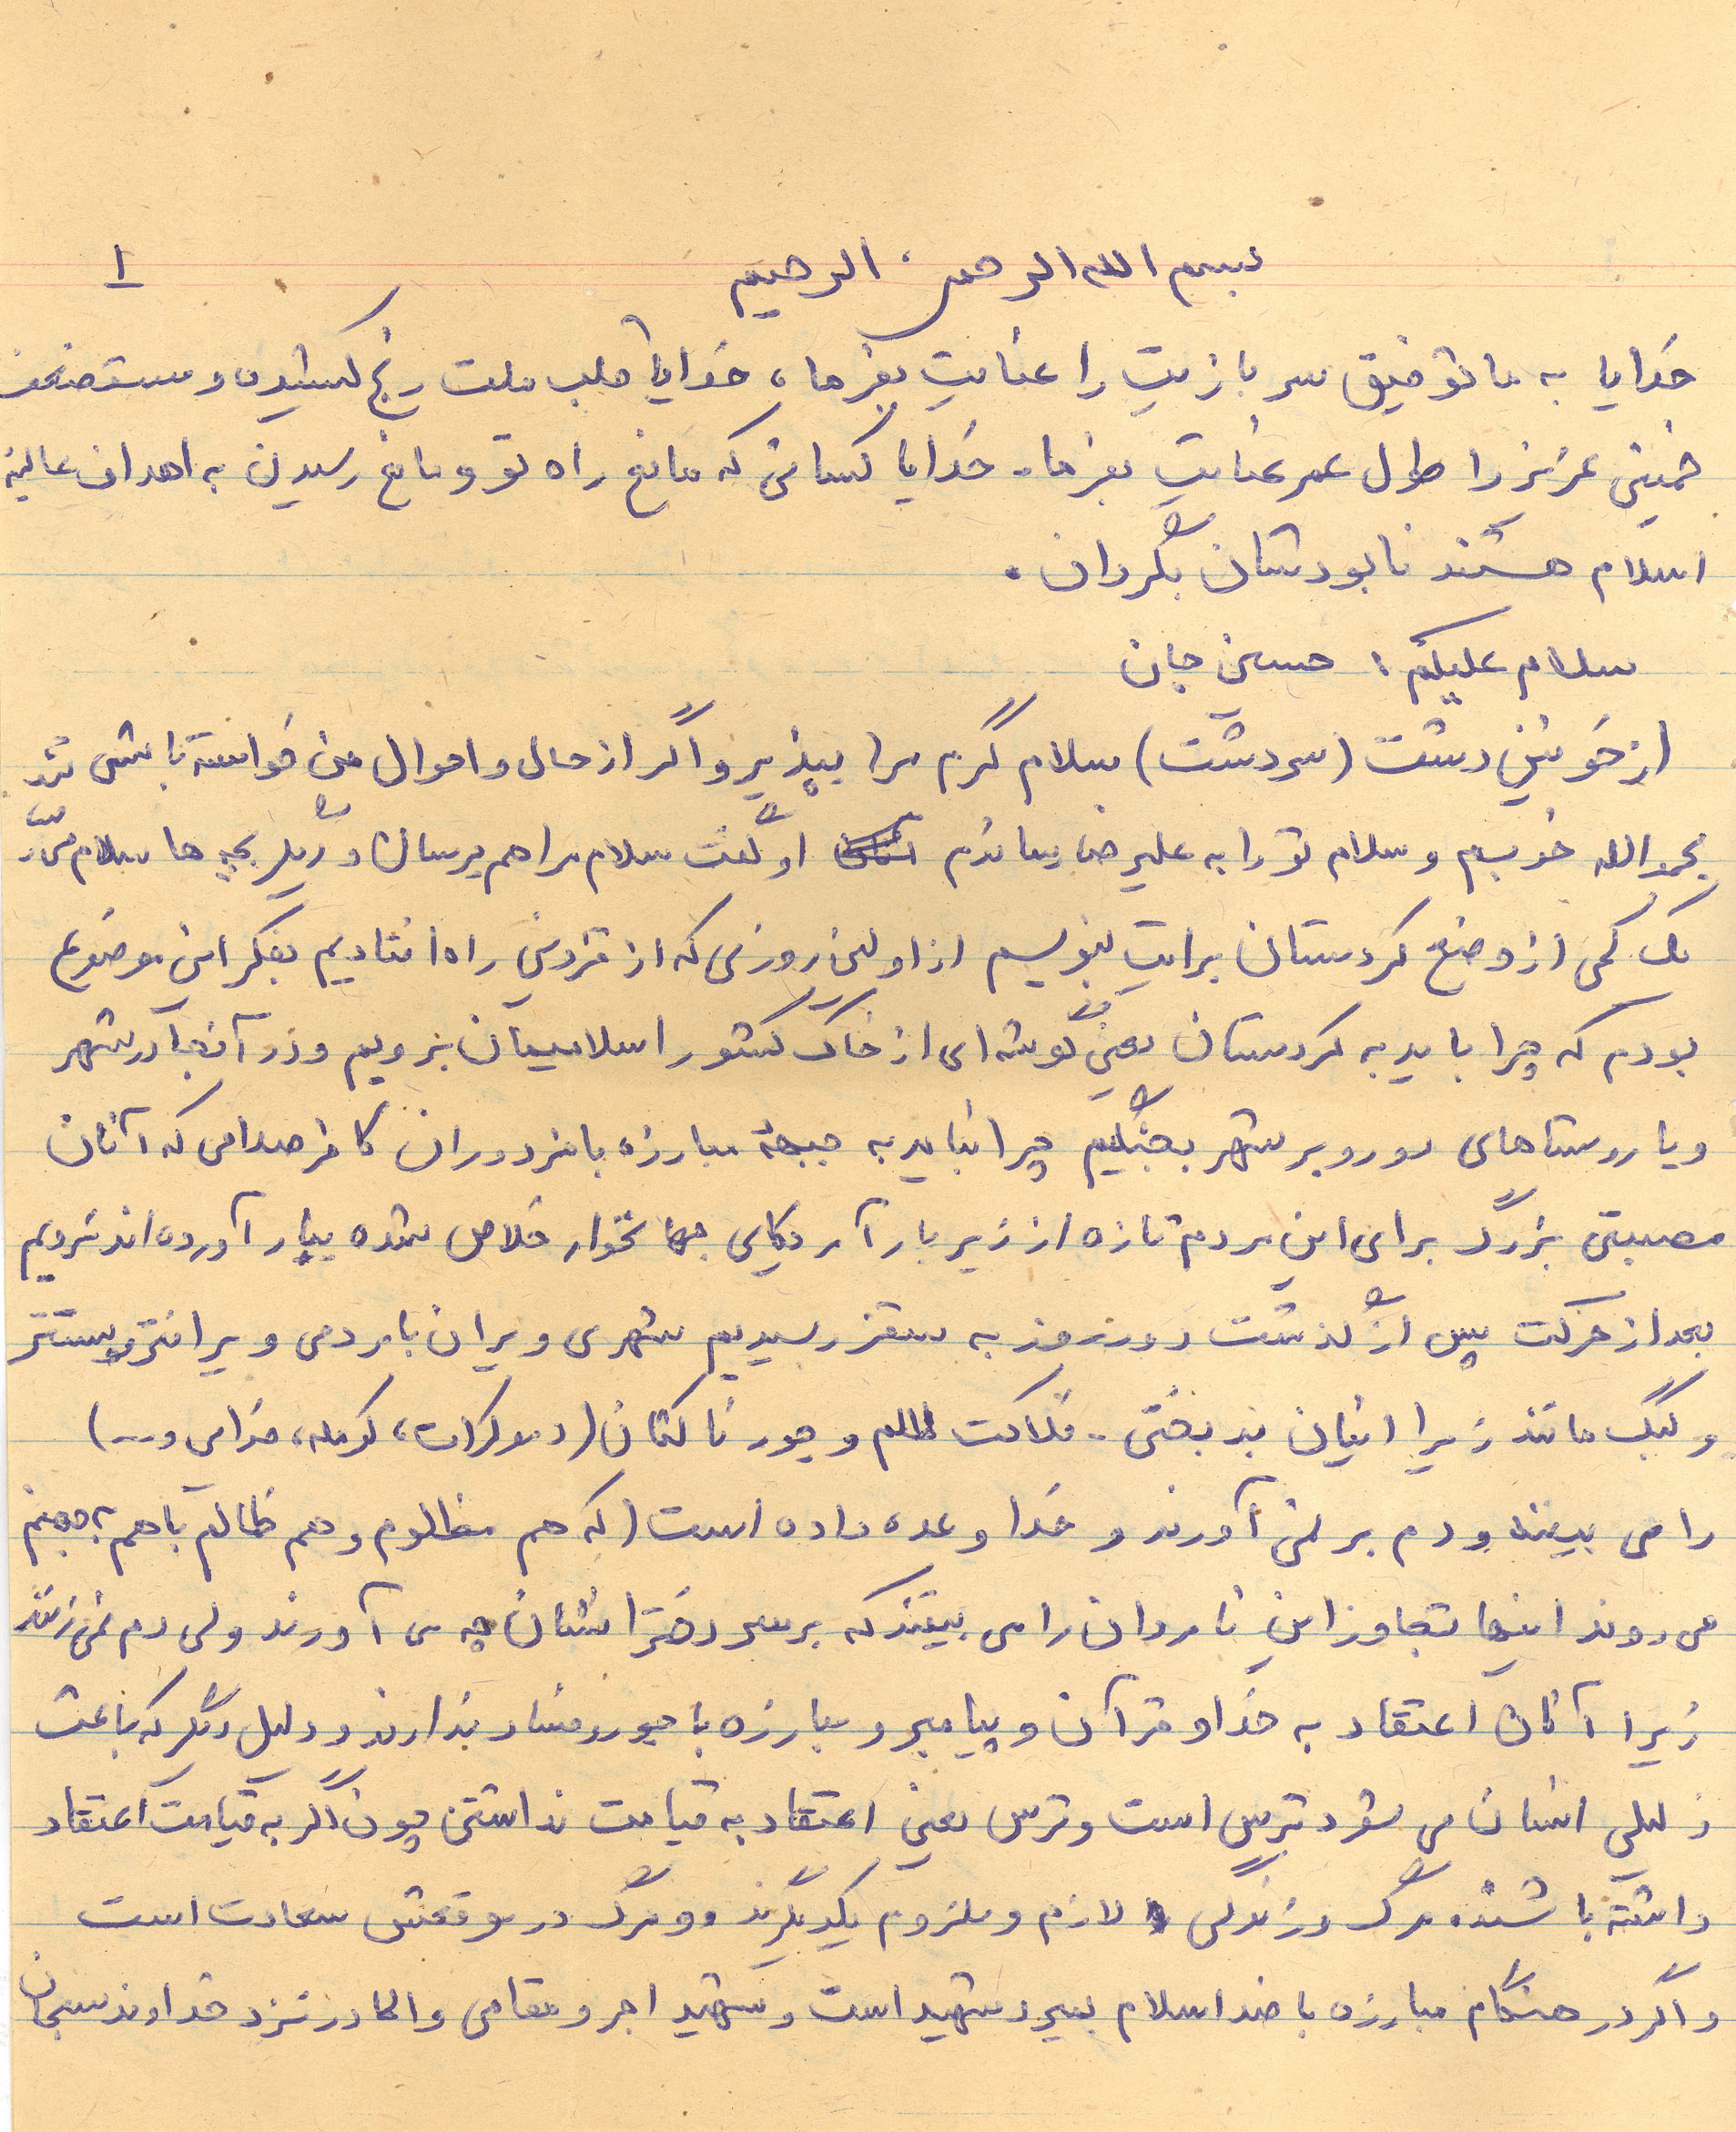 بسم الله الرحمن الرحیم
۱
خدایا به ما توفیق سربازیت را عنایت بفرما، خدایا قلب ملت رنج کشیده و مستضعف
خمینی عزیز را طول عمر عنایت بفرما. خدایا کسانی که مانع راه تو و مانع رسیدن به اهداف عالیه
اسلام هستند نابودشان بگردان.
سلام علیکم، حسین جان
از خونین دشت (سردشت) سلام گرم مرا بپذیر و اگر از حال و احوال من خواسته باشی
بحمدالله خوبم و سلام تو را به علیرضا رساندم او گفت سلام مرا هم برسان و دیگر بچه ها سلام
یک کمی از وضع کردستان برایت بنویسم از اولین روزی که از قزوین راه افتادیم بفکر این موضوع
بودم که چرا باید به کردستان یعنی گوشه ای از خاک کشور اسلامیمان برویم و در آنجا در شهر
و یا روستاهای دور و بر شهر بجنگیم چرا نباید به جبهه مبارزه با مزدوران کافر صدامی که آنان
مصیبتی بزرگ برای این مردم تازه از زیر بار آمریکای جهانخوار خلاص شده ببار آورده اند نرویم
بعد از حرکت پس از گذشت دو روز به سقز رسیدیم شهری ویران با مردمی ویرانتر
و گنگ مانند زیرا اینان بدبختی - فلاکت ظلم و جور ناکثان (دموکرات، کومله، فدایی و...)
را می بینند و دم بر نمی آورند و خدا وعده داده است (که هم مظلوم و هم ظالم با هم به جهنم
می روند اینها تجاوز این نامردان را می بینند که بر سر دخترانشان چه می آورند ولی دم نمی زنند
زیرا آنان اعتقاد به خدا و قرآن و پیامبر و مبارزه با جور و فساد ندارند و دلیل دیگر که باعث
ذلیلی انسان می شود ترس است و ترس یعنی اعتقاد به قیامت نداشتن چون اگر به قیامت اعتقاد
داشته باشند مرگ و زندگی لازم و ملزوم یکدیگرند و مرگ در موقعش سعادت است
و اگر در هنگام مبارزه با ضد اسلام بمیرد شهید است و شهید اجر و مقامی والا در نزد خداوند سبحان